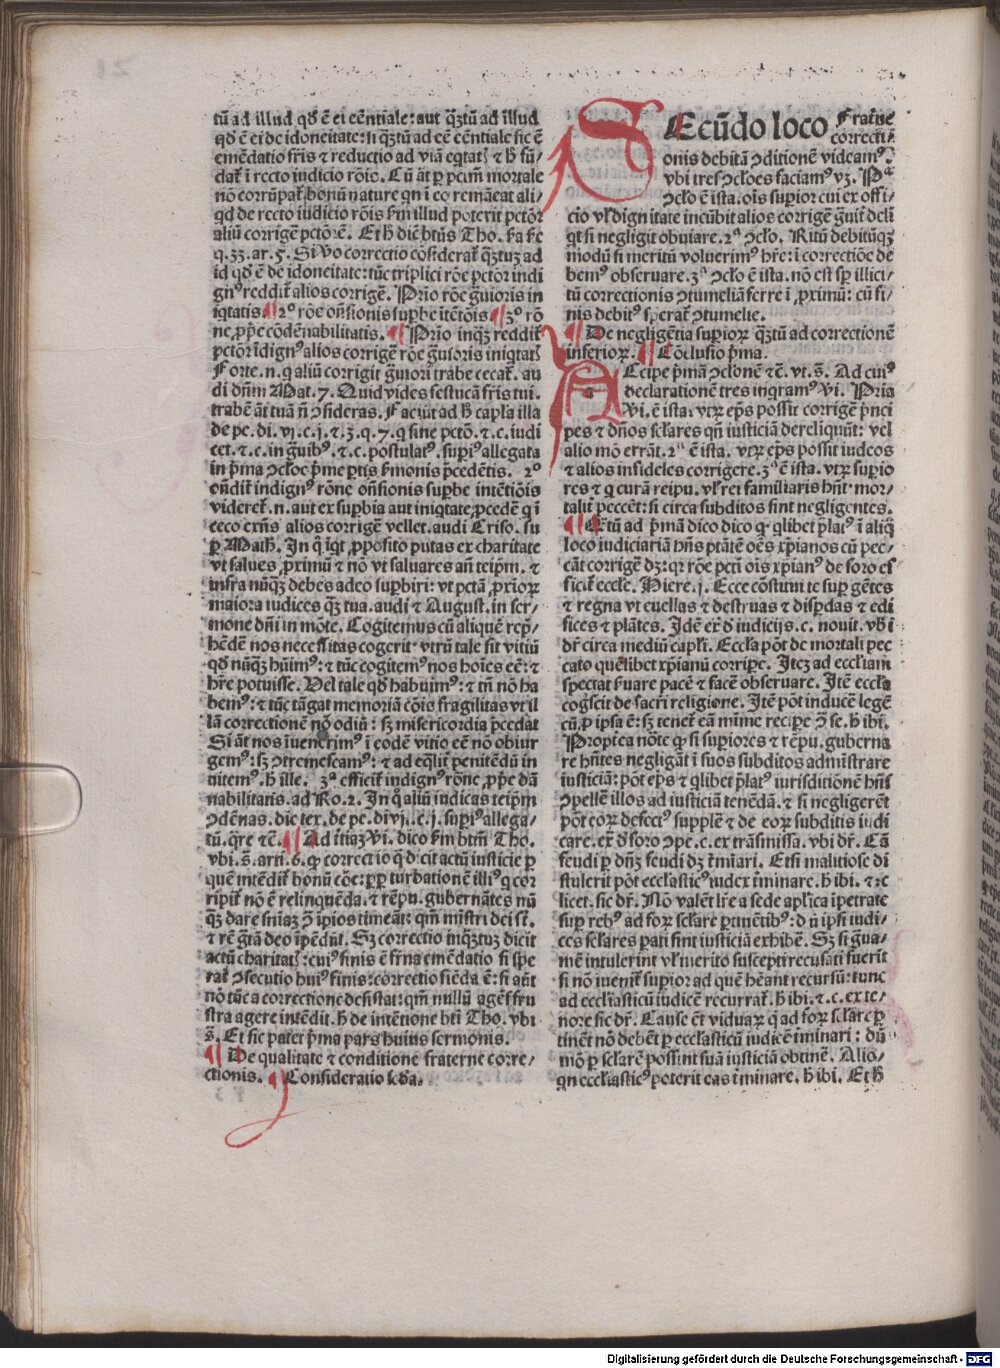 tū ad illud qd̄ ē ei eēntiale: aut q̄ȝtū ad illud
qd̄ ē ei de idoneitate: si q̄ȝtū ad eē eēntiale sic ē
emēdatio fr̄is ⁊ reductio ad viā eq̄tat᷒ ⁊ h̄ fū/
dat᷒ i recto iudicio rōis. Cū āt ꝑ pctm̄ mortale
nō corrūpat᷒ bonū nature qn i eo remāeat ali/
qd de recto iudicio rōis ẜm illud poterit pctōr
aliū corrigē pctōrē. Et h̄ diē btūs Tho. ẜa ẜe
q. 33. ar. 5. Si v̄o correctio cōsiderat᷒ q̄ȝtuȝ ad
id qd̄ ē de idoneitate: tūc triplici rōe pctōr indi
gn᷒ reddit᷒ alios corrigē. Prio rōe ḡuioris in
iqtatis. ¶ 2° rōe oñsionis supbe itētōis ¶ 3° rō
ne ꝓprie cōdēnabilitatis. ¶ Prio inq̄ȝ reddit᷒
pctōr īdign᷒ alios corrigē rōe ḡuioris iniqtat᷒
Forte. n. q aliū corrigit ḡuiori trabe cecat᷒. au
di dn̄m Mat. 7. Quid vides festucā fr̄is tui.
trabē āt tuā n̄ ↄsideras. Faciūt ad h̄ capla illa
de pe. di. vj. c. j. ⁊ 3. q. 7. q sine pctō. ⁊ c. iudi
cet. ⁊ c. in ḡuib᷒. ⁊ c. postulat᷒. supi᷒ allegata
in p̄ma ↄcloe p̄me ptis ẜmonis p̄cedētis. 2°
oñdit᷒ indign᷒ rōne oñsionis supbe intētiōis
videret᷒. n. aut ex supbia aut iniqtate ꝓcedē q i
ceco exn̄s alios corrigē vellet. audi Criso. su
ꝑ Math. In q̄ iqt ꝓposito putas ex charitate
vt salues ꝓximū ⁊ nō vt saluares añ teipm̄. ⁊
infra nūq̄ȝ debes adeo supbiri: vt pctā ꝓxioꝝ
maiora iudices q̄ȝ tua. audi ⁊ August. in ser/
mone dn̄i in mōte. Cogitemus cū aliquē rep̄/
hēdē nos necessitas cogerit: vtrū tale sit vitiū
qd̄ nūq̄ȝ hūim᷒: ⁊ tūc cogitem᷒ nos hoīes eē: ⁊
h̄re potuisse. Vel tale qd̄ habuim᷒: ⁊ tm̄ nō ha
bem᷒: ⁊ tūc tāgat memoriā cōis fragilitas vt il
lā correctionē nō odiū: sȝ misericordia p̄cedat
Si āt nos iuenerim᷒ i eodē vitio eē nō obiur
gem᷒: sȝ ↄtremescam᷒: ⁊ ad eq̄lit᷒ penitēdū in
uitem᷒. h̄ ille. 3ᵃ efficit᷒ indign᷒ rōne ꝓprie dā
nabilitatis. ad Ro. 2. In q̄ aliū iudicas teipm̄
ↄdēnas. dic tex. de pe. di vj. c. j. supi᷒ allega/
tū. q̄re ⁊c̄. ¶ Ad itiaȝ Vi. dico ẜm btm̄ Tho.
vbi. s̄. arti. 6. ꝙ correctio q̄ dicit actū iusticie ꝑ
quē intēdit᷒ bonū cōe: ꝓpt turbationē illi᷒ q cor
ripit᷒ nō ē relinquēda. ⁊ rēpu. gubernātes nū
q̄ȝ dare sn̄iaȝ ↄ̄ ipios timeāt: qm̄ mistri dei st̄.
⁊ rē ḡtā deo ipēdūt. Sȝ correctio inq̄ȝtuȝ dicit
actū charitat᷒: cui᷒ finis ē fr̄na emēdatio si spe
rat᷒ ↄsecutio hui᷒ finis: correctio siēda ē: si aūt
nō tūc a correctione desistat: qm̄ nullū agēs fru
stra agere intēdit. h̄ de intētione bti Tho. vbi
s̄. Et sic patet p̄ma pars huius sermonis.
¶ De qualitate ⁊ conditione fraterne corre/
ctionis. ¶ Consideratio scd̄a.
SEcūdo loco Frat̄ne
correcti
onis debitā ↄditionē videam᷒.
vbi tres ↄcloes faciam᷒ vȝ. Pᵃ
ↄclo ē ista. oīs supior cui ex offi/
cio vl᷒ dignitate incūbit alios corrigē ḡuit᷒ deli
qt si negligit obuiare. 2ᵃ ↄclo. Ritū debitūqȝ
modū si meritū voluerim᷒ h̄re: i correctiōe de
bem᷒ obseruare. 3ᵃ ↄclo ē ista. nō est sp illici/
tū correctionis ↄtumeliā ferre i ꝓximū: cū fi/
nis debit᷒ sperat᷒ ↄtumelie.
¶ De negligētia superioꝝ q̄ȝtū ad correctionē
inferioꝝ. ¶ Cōclusio p̄ma.
ACcipe p̄mā ↄclonē ⁊c̄. vt. s̄. Ad cui᷒
declarationē tres inqram᷒ Vi. Pria
Vi. ē ista. vtꝝ ep̄s possit corrigē p̄nci
pes ⁊ dn̄os sclares qn̄ iusticiā dereliquūt: vel
alio mō errāt. 2ᵃ ē ista. vtꝝ ep̄s possit iudeos
⁊ alios infideles corrigere. 3ᵃ ē ista. vtꝝ supio
res ⁊ q curā reipu. vl᷒ rei familiaris hn̄t mor/
talit᷒ peccēt: si circa subditos sint negligentes.
¶ Q̄tū ad p̄mā dico dico ꝙ qlibet p̄lat᷒ i aliq̄
loco iudiciariā hn̄s ptātē oēs xp̄ianos cū pec/
cāt corrigē dȝ: qꝛ rōe pcti oīs xp̄ian᷒ de foro ef
ficit᷒ eccl̄e. Hiere. j. Ecce cōstitui te sup gētes
⁊ regna vt euellas ⁊ destruas ⁊ disp̄das ⁊ edi
fices ⁊ plātes. Idē ex̄ d̄ iudicijs. c. nouit. vbi
dr̄ circa mediū capl̓i. Eccl̄a pōt de mortali pec
cato quēlibet xp̄ianū corripe. Iteȝ ad eccl̄iam
spectat ẜuare pacē ⁊ facē obseruare. Itē eccl̄a
cogscit de sacr̄i religione. Itē pōt inducē legē
cū ꝓ ipsa ē: sȝ tenet᷒ eā mīme recipe ↄ̄ se. h̄ ibi.
Proptea nōte ꝙ si supiores ⁊ rēpu. guberna
re hn̄tes negligāt i suos subditos admīstrare
iusticiā: pōt ep̄s ⁊ qlibet p̄lat᷒ iurisditionē hn̄s
ↄpellē illos ad iusticiā tenēdā. ⁊ si negligerēt
pōt eoꝝ defect᷒ supplē ⁊ de eoꝝ subditis iudi
care. ex̄ d̄ foro ↄpe. c. ex trāsmissa. vbi dr̄. Cā
feudi ꝑ dn̄ȝ feudi dȝ t̄minari. Etsi malitiose di
stulerit pōt ecclastic᷒ iudex t̄minare. h̄ ibi. ⁊ c
licet. sic dr̄. Nō valēt lr̄e a sede apl̓ica īpetrate
sup reb᷒ ad foꝝ sclare ptinētib᷒: d̄ n̄ ipsi iudi/
ces sclares pati sint iusticiā exhibē. Sȝ si ḡua/
mē intulerint vl᷒ merito suspecti recusati fuerit
si nō iuenit᷒ supior ad quē hēant recursū: tunc
ad eccl̄iasticū iudicē recurrat᷒. h̄ ibi. ⁊ c. ex te/
nore sic dr̄. Cause et̄ viduaꝝ q̄ ad foꝝ sclare ꝑ
tinēt nō debēt ꝑ ecclasticū iudicē t̄minari: dū
mō ꝑ sclarē possint suā iusticiā obtinē. Alio/
qn ecclastic᷒ poterit eas t̄minare. h̄ ibi. Et h̄
Digitalisierung gefördert durch die Deutsche Forschungsgemeinschaft - DFG